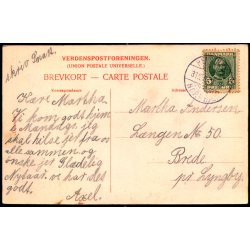 skriv Snart
VERDENSPOSTFORENINGEN.
(UNION POSTALE UNIVERSELLE.)
BREVKORT — CARTE POSTALE
Kære Martha
Vi kom godt hjem
i Mandags, jeg
skal hilse jer fra os
alle sammen og
ønske jer Glædelig
Nytaar, vi har det
godt. Axel.
Martha Andersen
Længen No 50.
Brede
pr Lyngby.